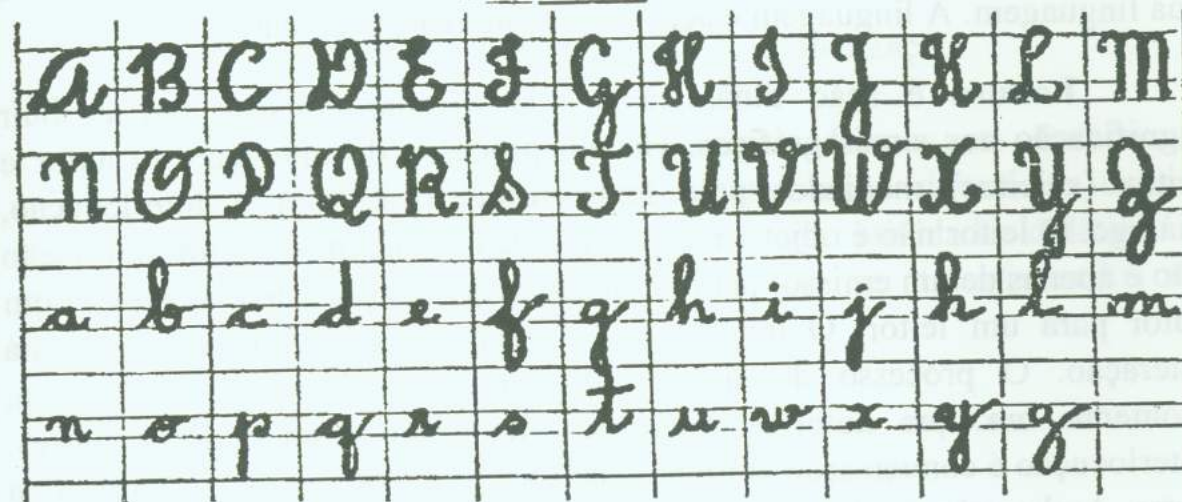 A B C D E F G H I J K L M
N O P Q R S T U V W X Y Z
a b c d e f g h i j k l m
n o p q r s t u w x y z